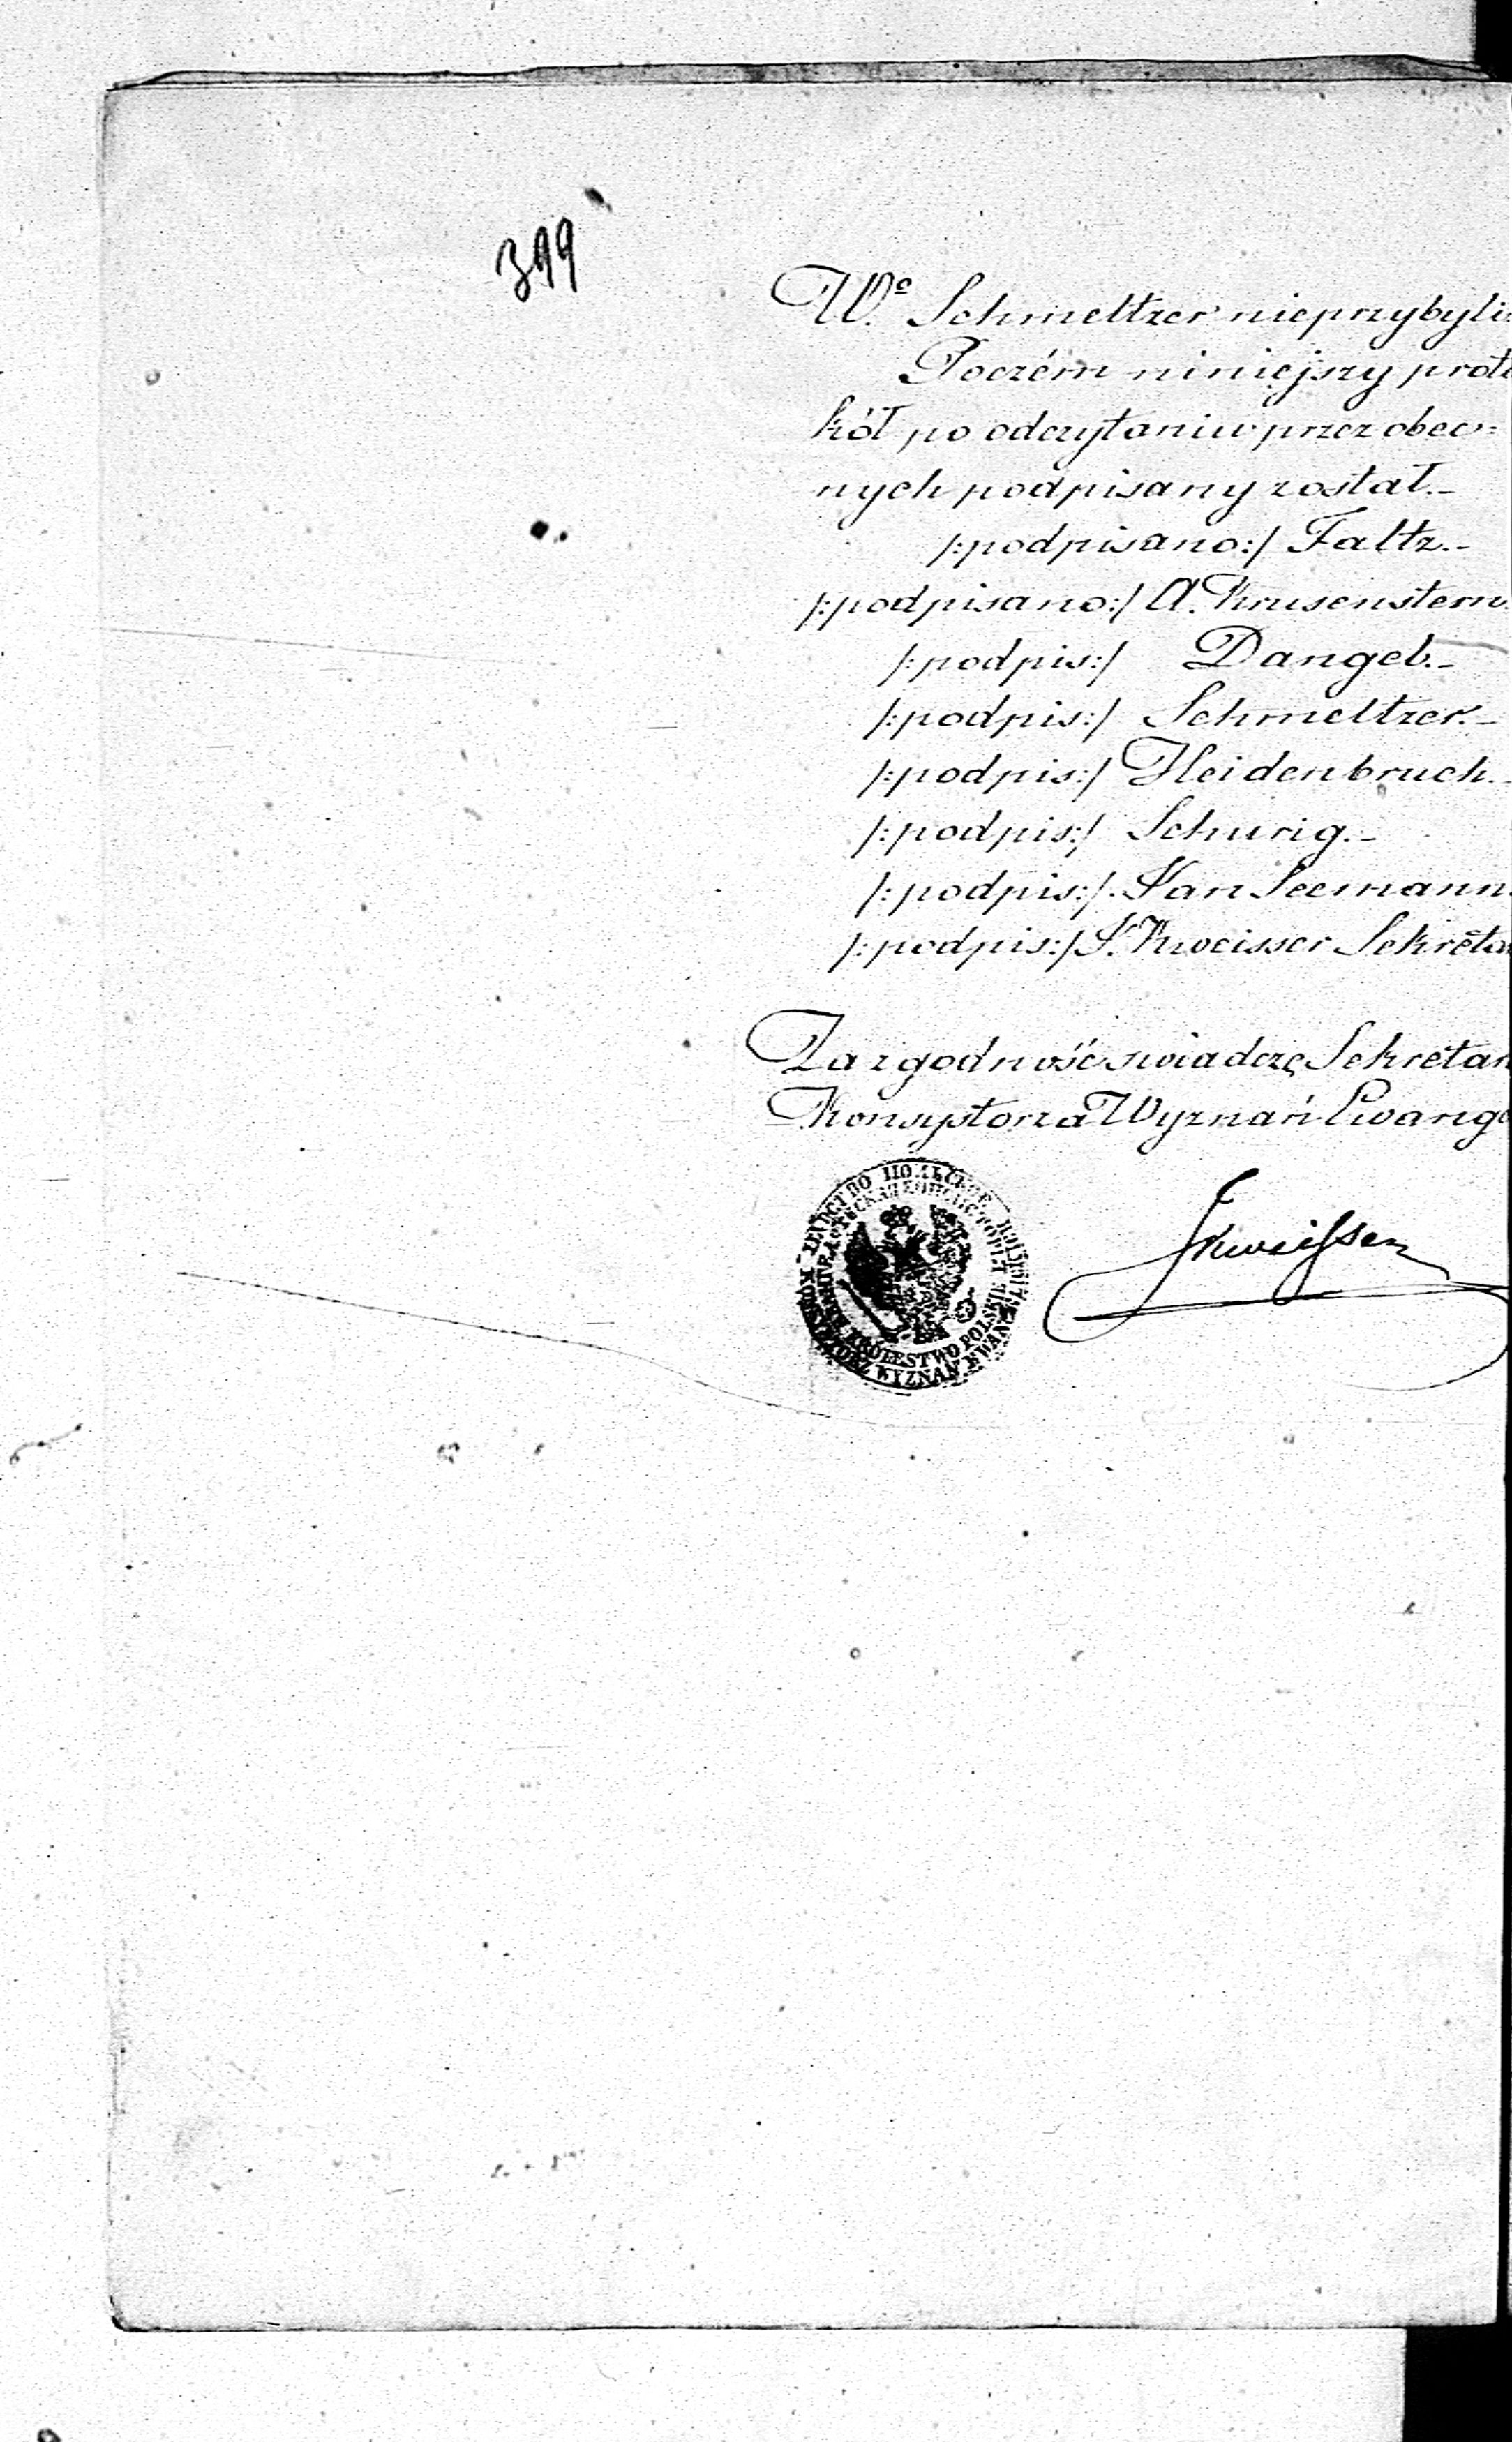 399
W.º Schmeltzer nieprzybyli
Poczém niniejszy proto
kół po odczytaniu przez obec=
nych podpisany został.-
/:podpisano:/ Faltz.-
/:podpisano:/ A. Krusenstern.
/:podpis:/ Dangel.-
/:podpis:/ Schmeltzer.-
/:podpis:/ Heidenbruch.-
/:podpis:/ Schurig.-
/:podpis:/ Van Seemann.
/:podpis:/ J. Kweisser Sekreta
Za zgodność swiadczę Sekretar
Konsystorza Wyznań Ewange
KRÓLESTWO POLSKIE
WYZNAŃ EWANG
JKweisser